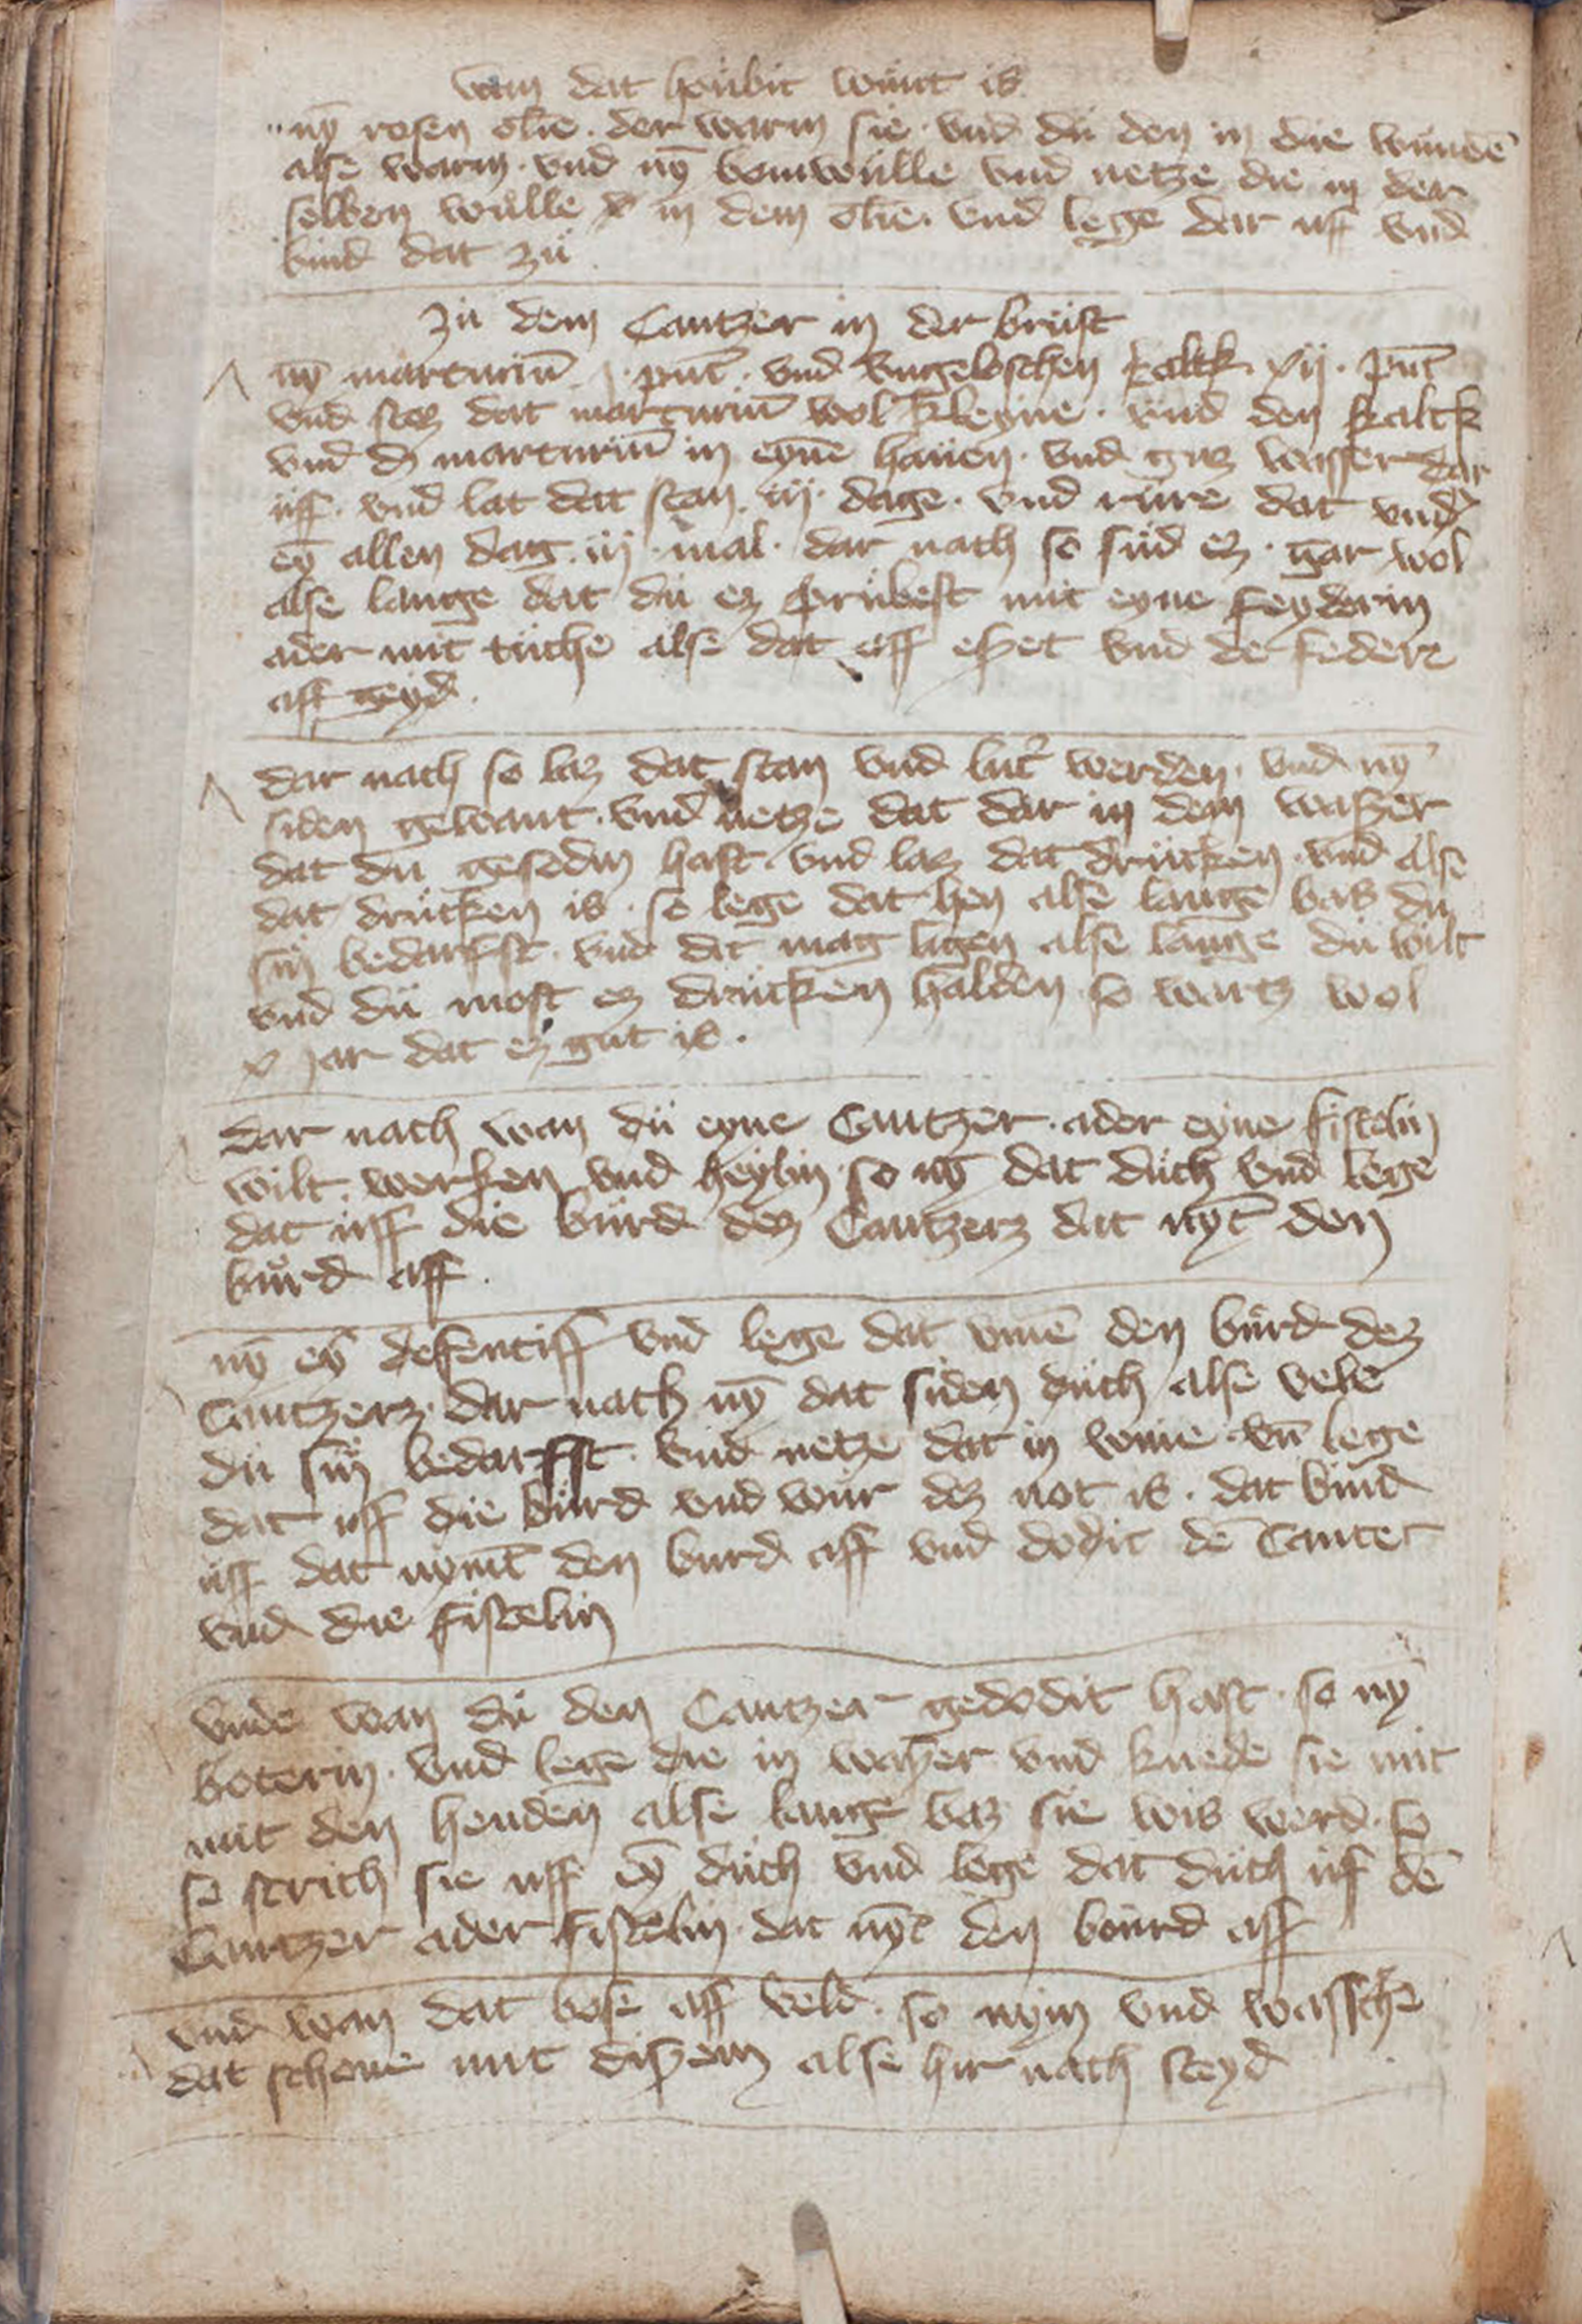 wan dat houbit wunt is
ny̅ rosen olie · der warm sie · vnd du den in die wunde̅
alse warm · vnd ny̅ bomwulle vnd netze die in der
selben wulle in dem olie · vnd lege dar uff vnd
bind dat zu
zu dem Cantzer in der brust
ny̅ marturiu̅ j · pu̅t · vnd vngeloschen kaltk xij · pu̅t
vnd stoz dat marturiu̅ wol kleyne · vnd den kaltk
vnd dz marturiu̅ in eyne̅ hauen · vnd guz wasser dar
uff · vnd lat dat stan iij · dage · vnd rure dat vnd̾
ey̅ allen dag iij · mal · dar nach so sud ez · gar wol
alse lange dat du ez prubest mit eyne feyderin
ader mit tuche alse dat aff eßet vnd de federe
aff geyd ·
dar nach so laz dat stan vnd lut̾ werden · vnd ny̅
siden gewant · vnd netze dat dar in dem waßer
dat du gesodin hast · vnd laz dat drucken · vnd alse
dat drucken is · so lege dat hen alse lange bas du
sin bedarfst · vnd dat mag ligen alse lange du wilt
vnd du most ez drucken halden so wartz wol
x jar dat ez gut is ·
dar nach wan du eyne Cantzer · ader eyne fistelin
wilt werken vnd heylin · so ny̅ dat duch vnd lege
dat uff die burd dez Cantzerz dat ny̅t den
burd aff ·
ny̅ ey̅ defentiff vnd lege dat vme̅ den burd dez
Cantzerz · dar nach ny̅ dat siden duch alse vele
du sin bedarfst · vnd netze dat in wine · vn̅ lege
dat uff die burd vnd wur dez not is · dat bind
uff dat nymt̅ den burd aff vnd dodit de̅ Canter
vnd die fistelin
vnde wan du den Cantzer gedodit hast · so ny̅
boterin · vnd lege die in waßer vnd knede sie mit
mit den henden alse lange baz sie wis werd · so
so strich sie uff ey̅ duch vnd lege dat duch uf de̅
Cantzer ader fistelin · dat ny̅t den bourd aff
vnd wan dat bose aff veld · so nym vnd wassche
dat schone mit dißem alse hir nach steyd